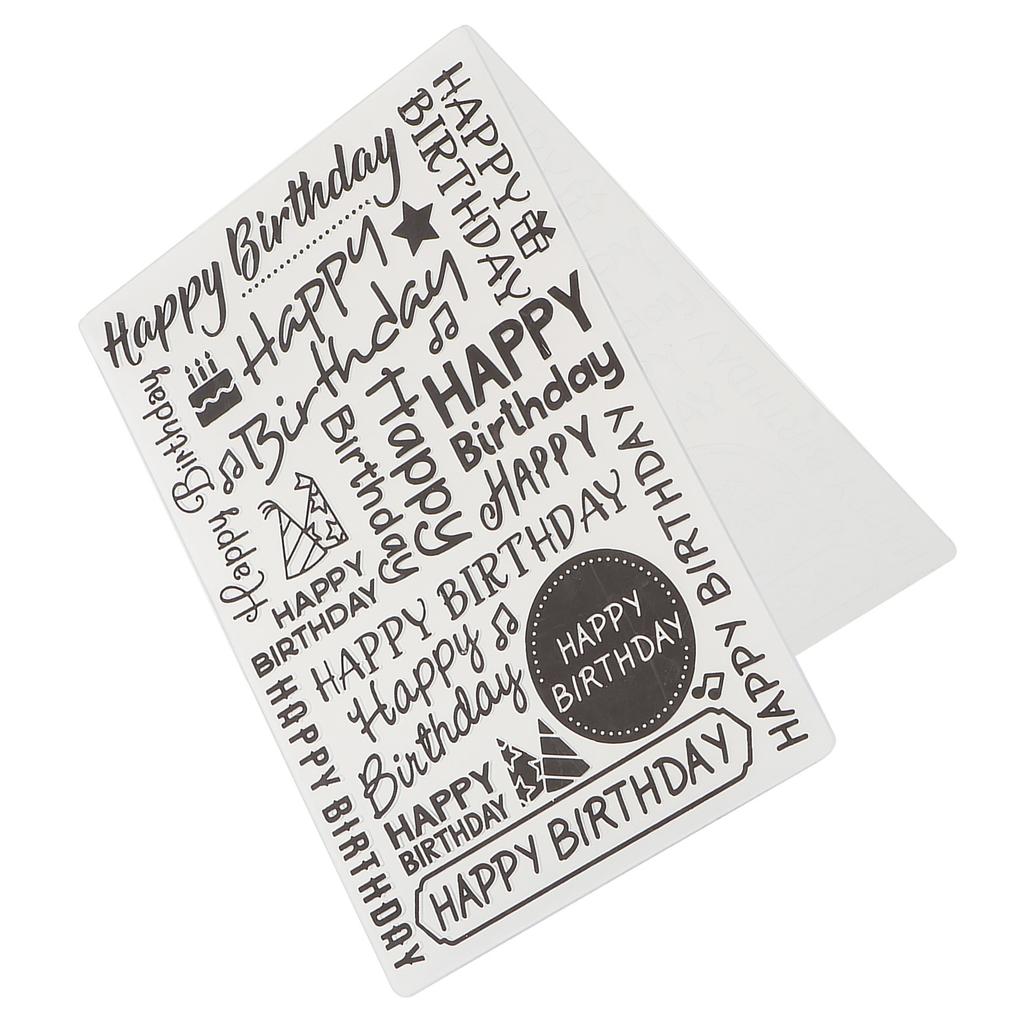 HAPPY
BIRTHDAY
Happy Birthday
Happy
Birthday
HAPPY
Birthday
Happy Birthday
Happy
Birthday
HAPPY
BIRTHDAY
HAPPY
BIRTHDAY
HAPPY BIRTHDAY
Happy
Birthday
HAPPY
BIRTHDAY
HAPPY BIRTHDAY
HAPPY BIRTHDAY
HAPPY
BIRTHDAY
HAPPY BIRTHDAY